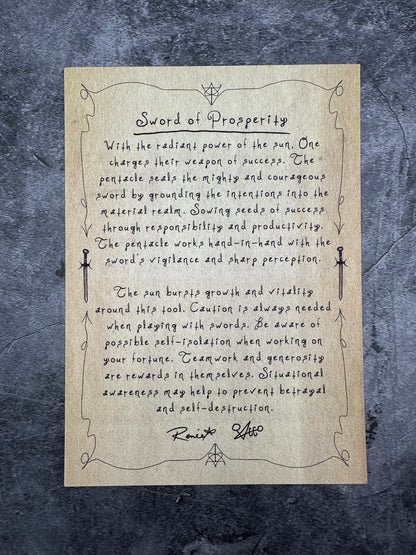 Sword of Prosperity
With the radiant power of the sun, One
charges their weapon of success. The
pentacle seals the mighty and courageous
sword by grounding the intentions into the
material realm. Sowing seeds of success
through responsibility and productivity.
The pentacle works hand-in-hand with the
sword's vigilance and sharp perception.
The sun bursts growth and vitality
around this tool. Caution is always needed
when playing with swords. Be aware of
possible self-isolation when working on
your fortune. Teamwork and generosity
are rewards in themselves. Situational
awareness may help to prevent betrayal
and self-destruction.